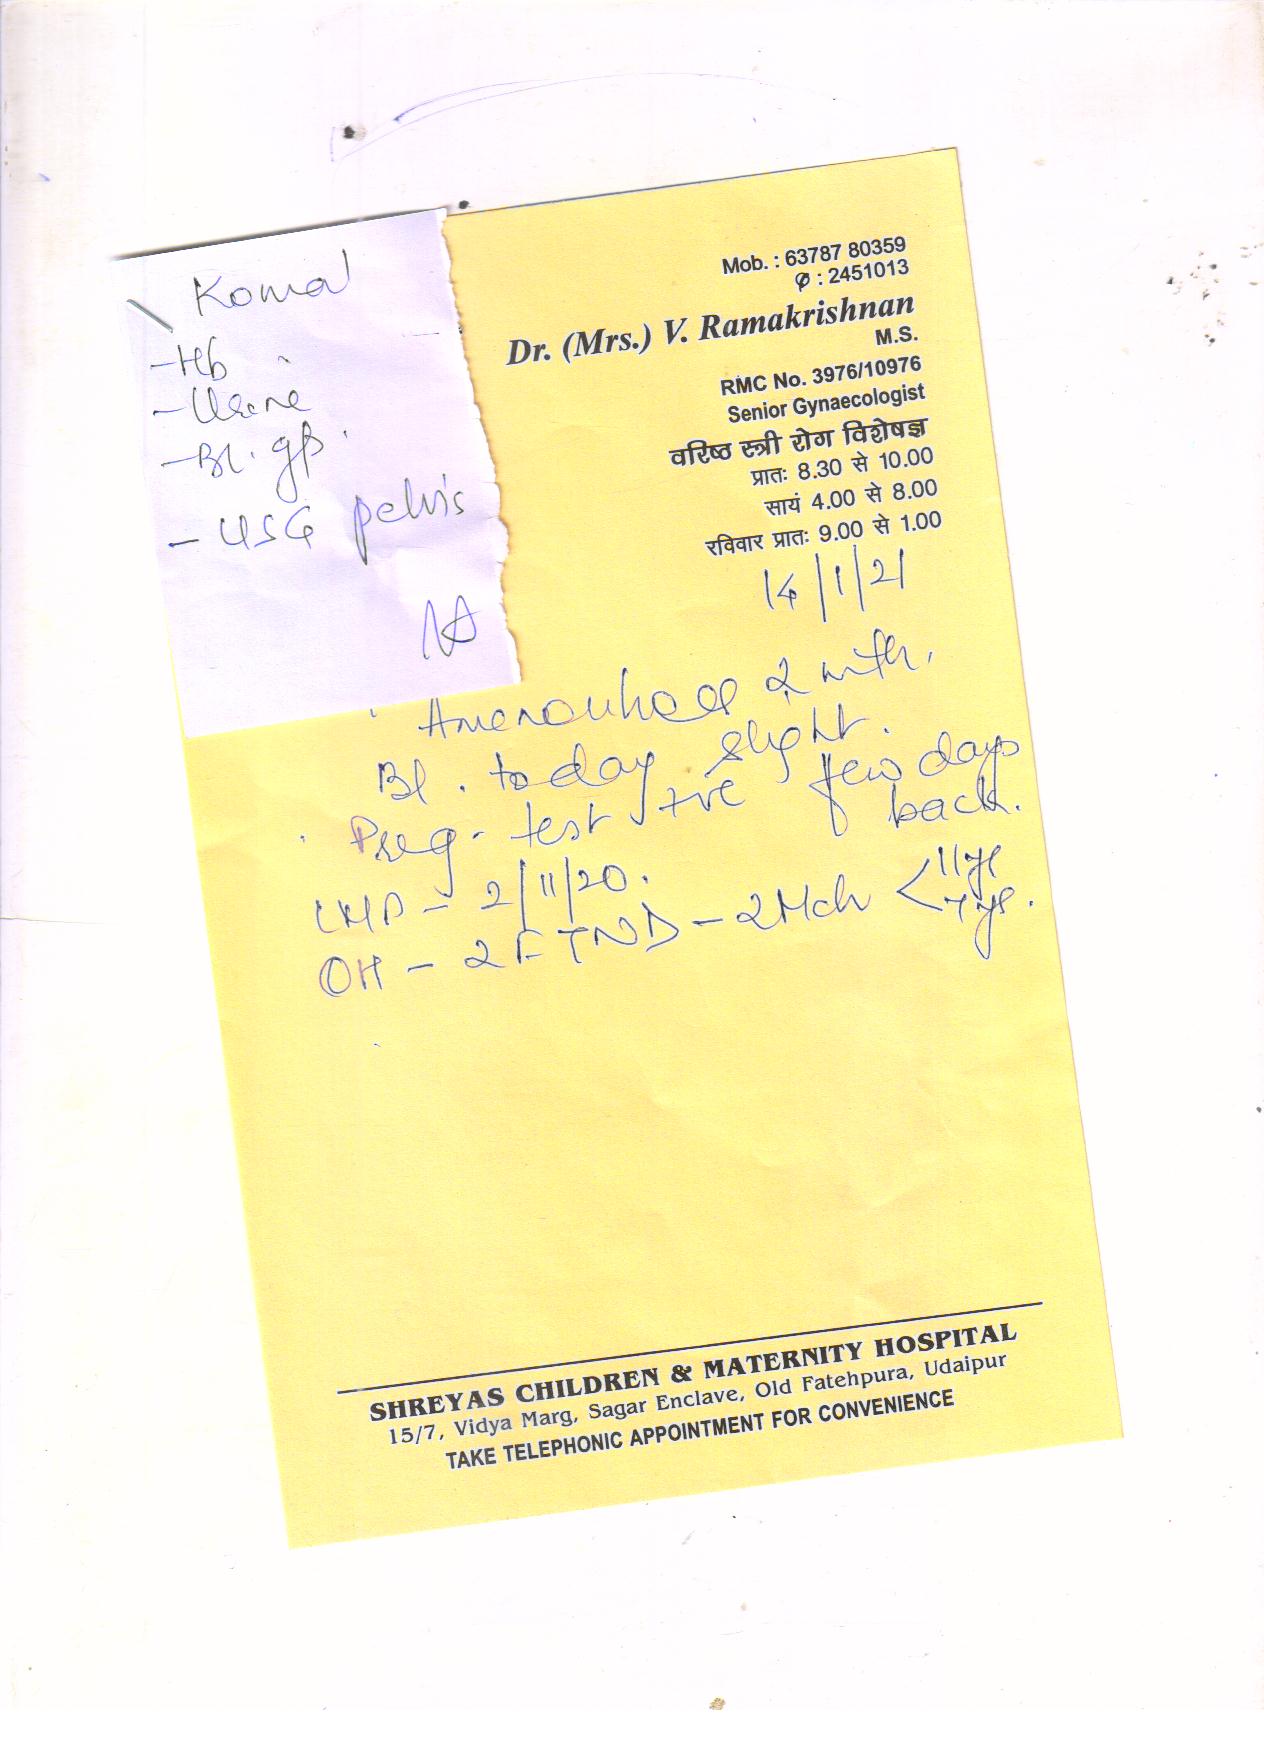 Komal
- Hb
- Urine
- Bl. gp.
- USG pelvis
Mob. : 63787 80359
✆ : 2451013
Dr. (Mrs.) V. Ramakrishnan
M.S.
RMC No. 3976/10976
Senior Gynaecologist
वरिष्ठ स्त्री रोग विशेषज्ञ
प्रातः 8.30 से 10.00
सायं 4.00 से 8.00
रविवार प्रातः 9.00 से 1.00
14/1/21
Amenorrhoea 2 mth.
Bl. today slight.
Preg. test +ve few days
back.
LMP - 2/11/20.
OH - 2 FTND - 2 Mch < 11 yr
7 yr.
SHREYAS CHILDREN & MATERNITY HOSPITAL
15/7, Vidya Marg, Sagar Enclave, Old Fatehpura, Udaipur
TAKE TELEPHONIC APPOINTMENT FOR CONVENIENCE